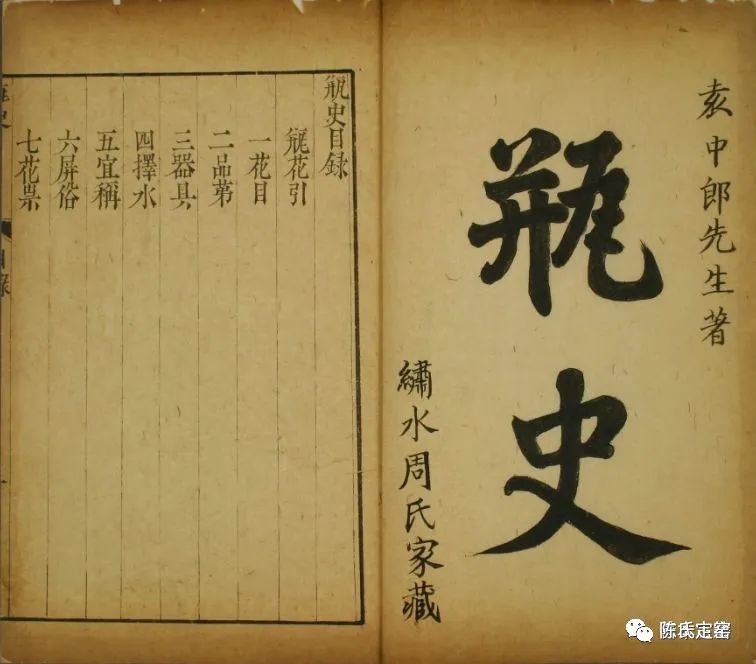 袁中郎先生著
瓶史
繡水周氏家藏
瓶史目録
瓶花引
一花目
二品苐
三器具
四擇水
五宜稱
六屏俗
七花祟
目録
陈氏定窑